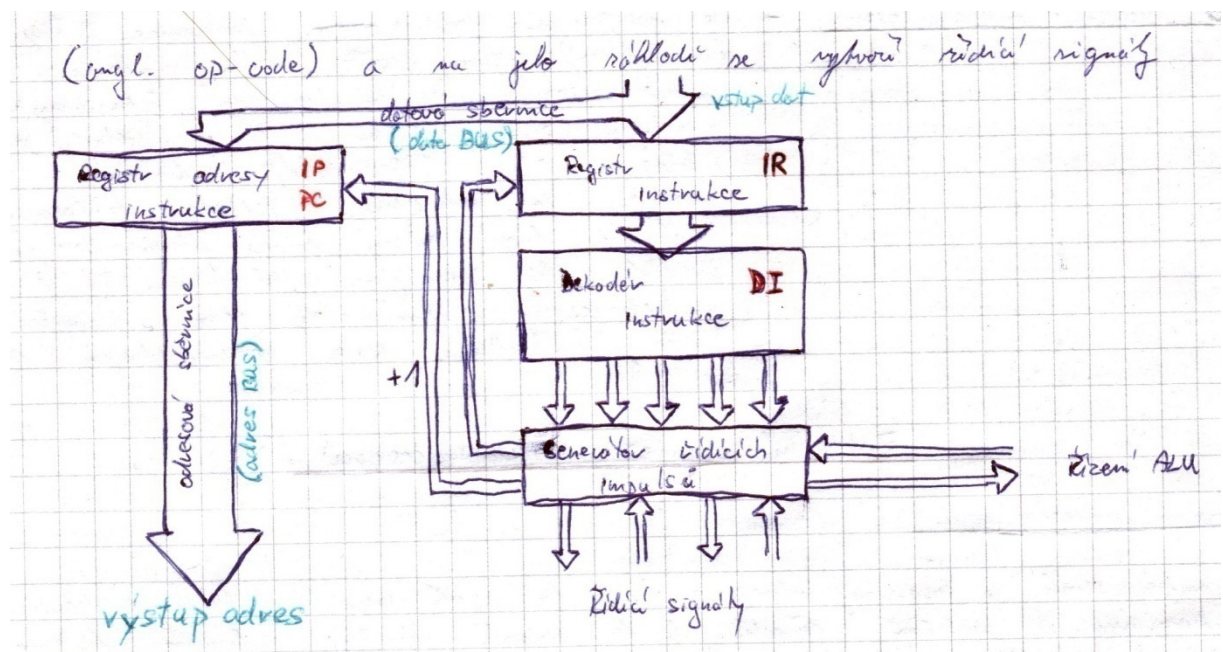 (angl. op-code) a na jeho základě se vytvoří řídící signály
vstup dat
datová sběrnice
(data BUS)
Registr adresy IP
instrukce PC
Registr IR
instrukce
Dekodér DI
instrukce
+1
adresová sběrnice
(adres BUS)
Generátor řídících
impulsů
Řízení ALU
Řídící signály
výstup adres